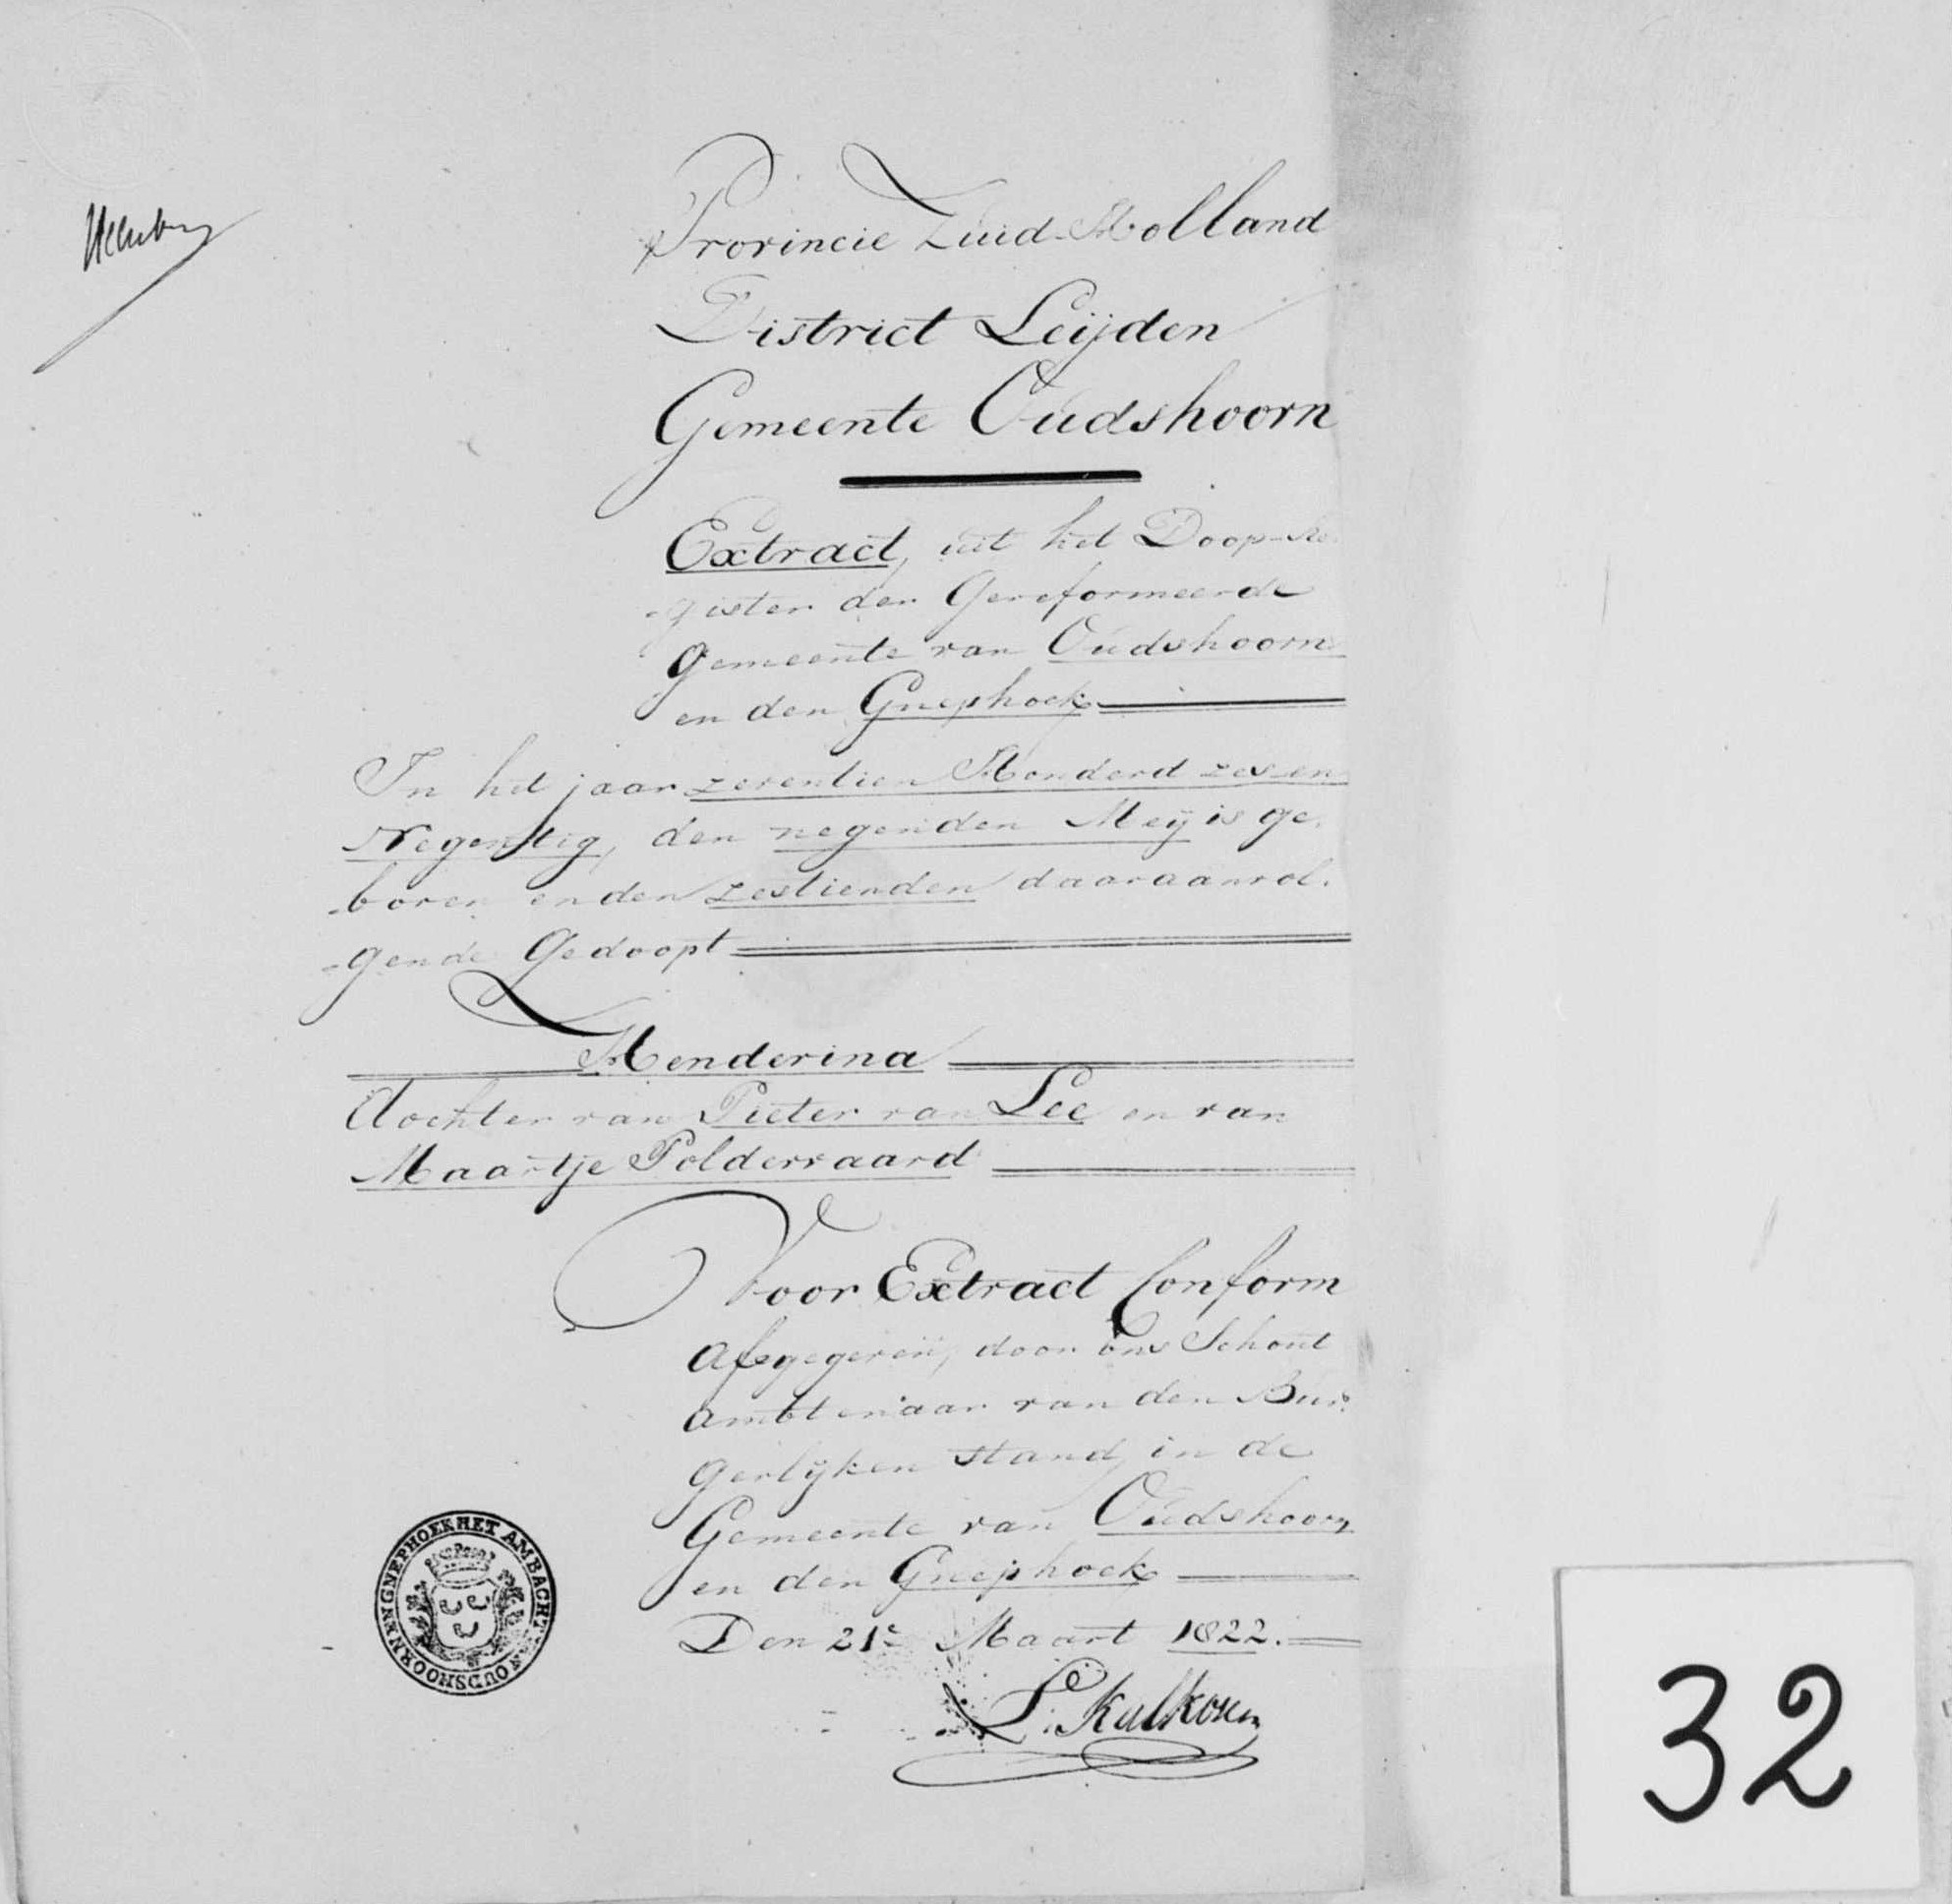 Provincie Zuid-Holland
District Leijden
Gemeente Oudshoorn
Extract, uit het Doop-Re-
-gister der Gereformeerde
gemeente van Oudshoorn
en den Gnephoek
In het jaar zeventien Honderd zes en
Negentig, den negenden Meij is ge-
-boren en den zestienden daaraanvol-
-gende Gedoopt
Henderina
dochter van Pieter van Lee en van
Maartje Poldervaard
Voor Extract Conform
afgegeven, door ons Schout
ambtenaar van den Bur-
gerlijken stand, in de
Gemeente van Oudshoorn
en den Gnephoek
Den 21e Maart 1822.
L. Kalkoen
HET AMBACHT VAN OUDSHOORN EN GNEPHOEK
32